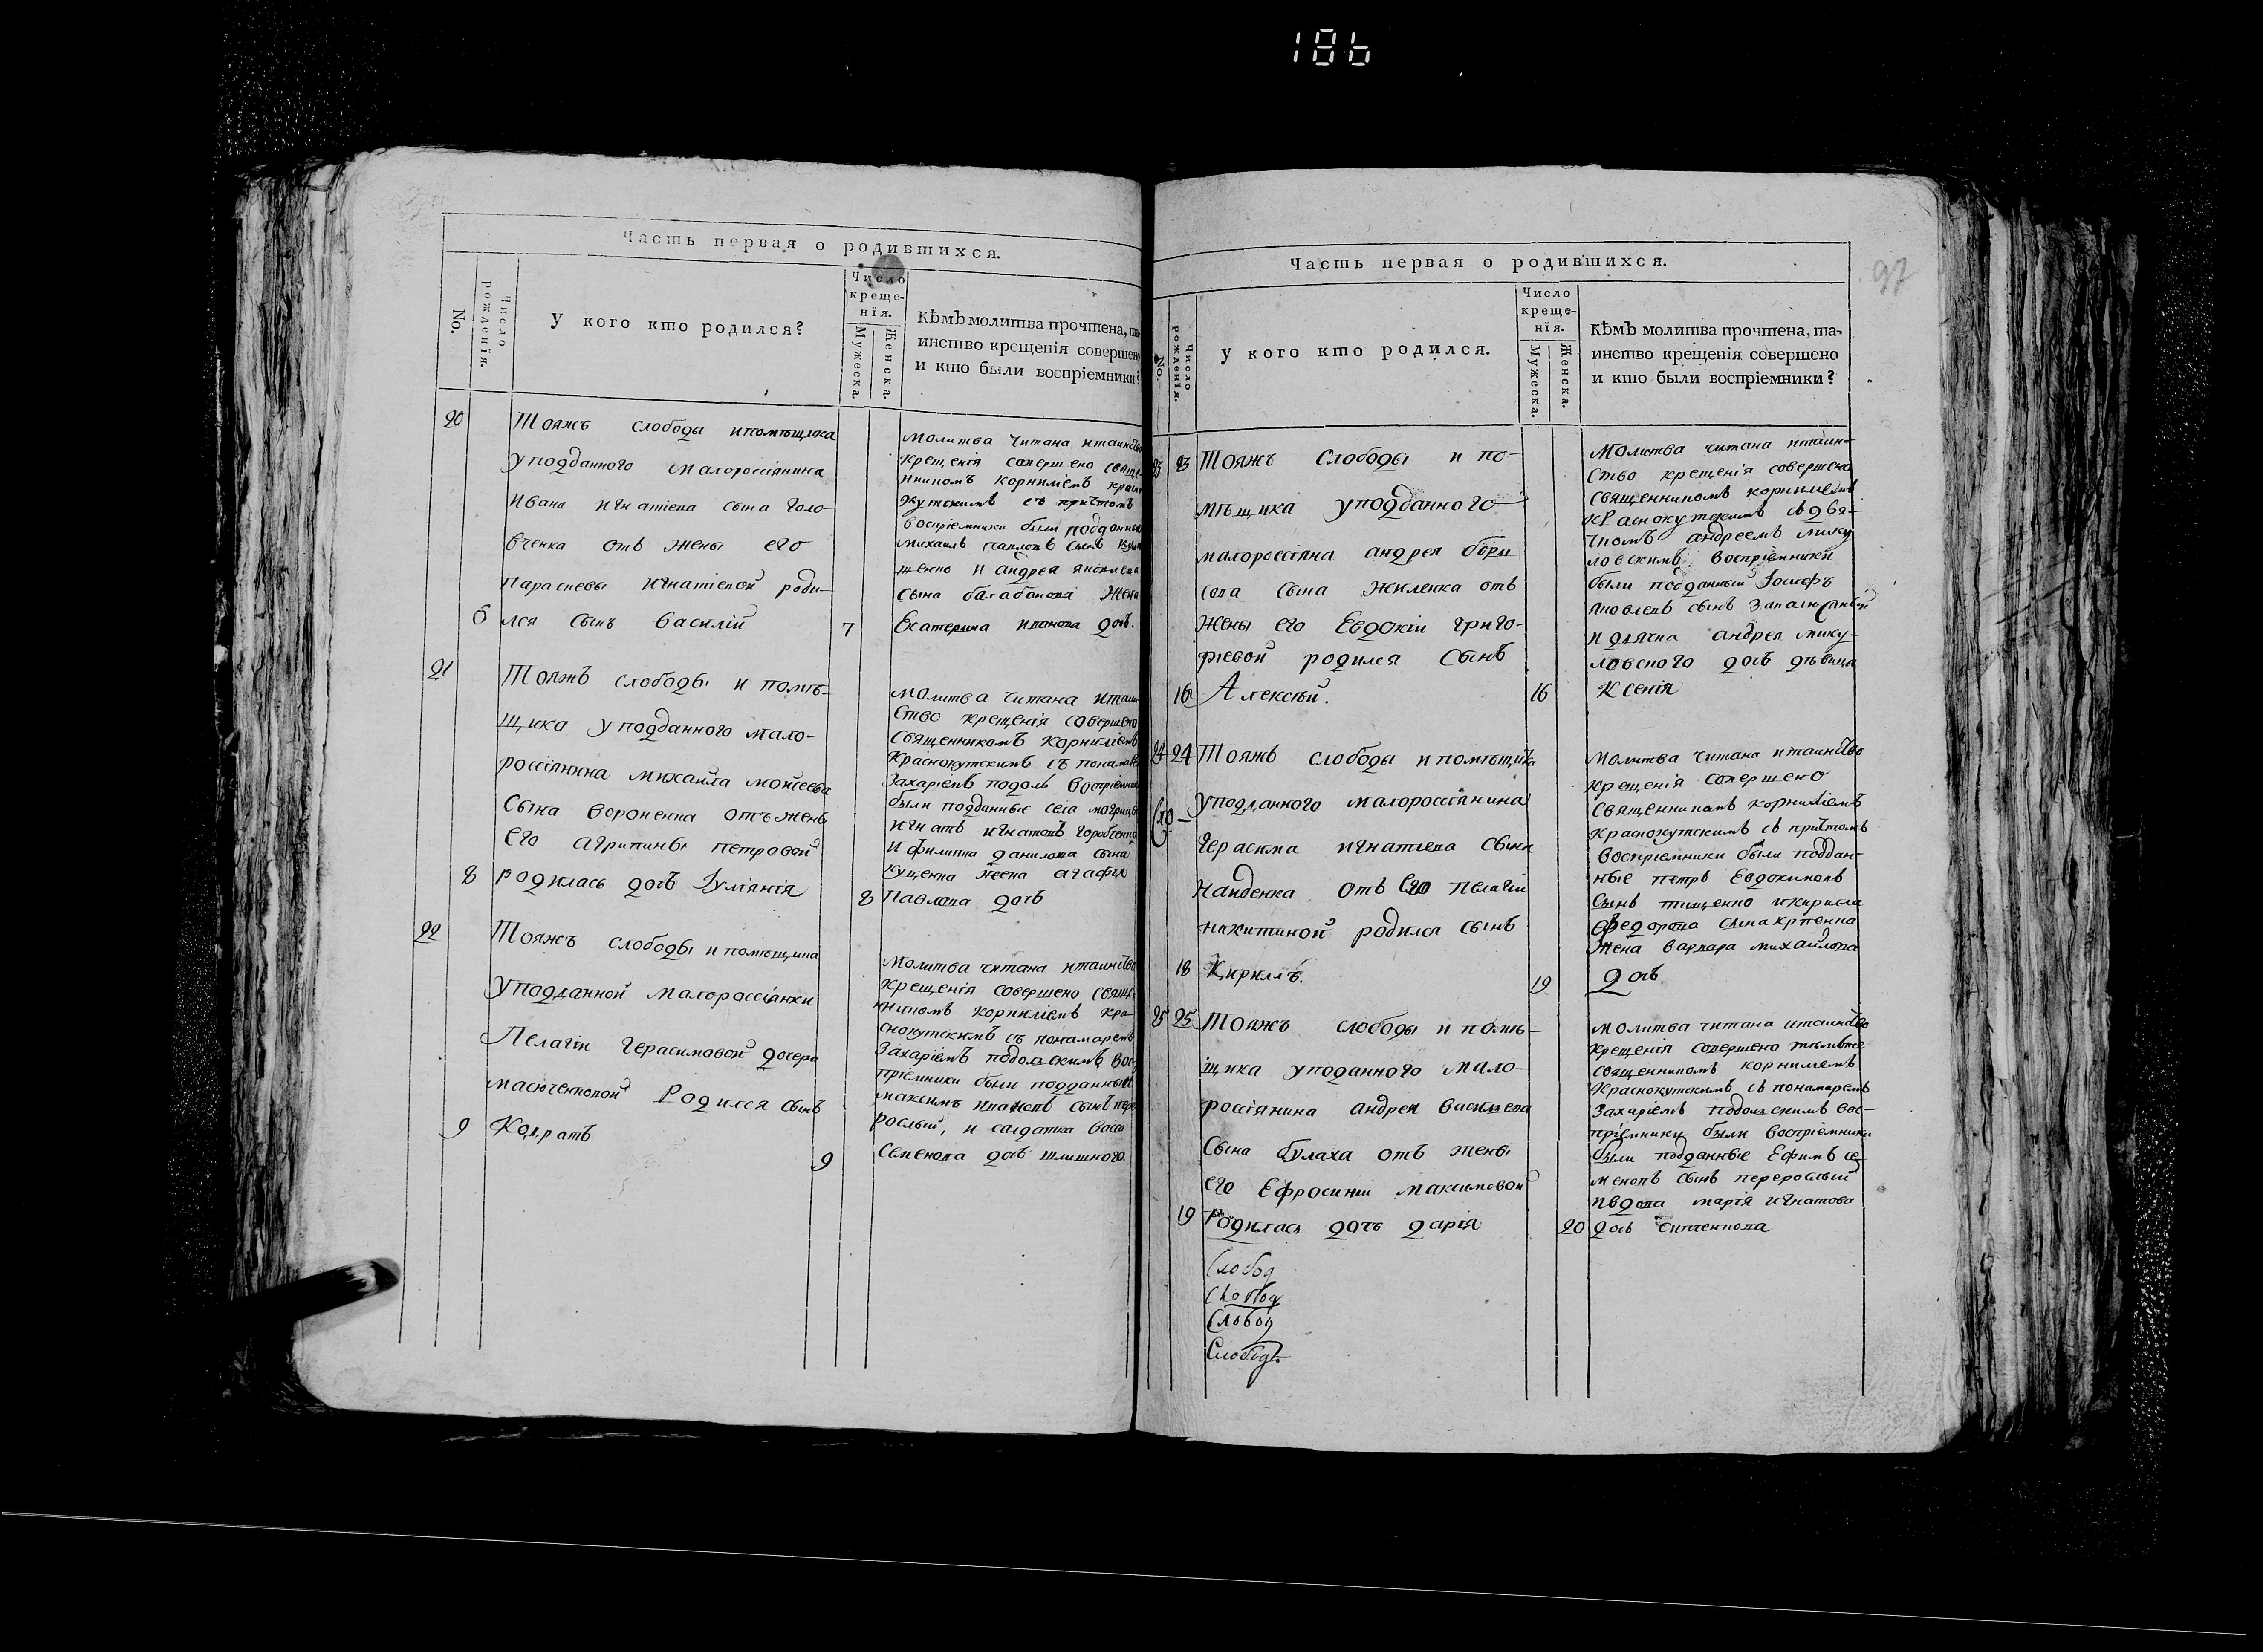 186
Часть первая о родившихся.
No.
Число рожденія.
У кого кто родился?
Число
креще-
нія.
Мужеска.
Женска.
Кѣмъ молитва прочтена, та-
инство крещенія совершено
и кто были воспріемники?
20
Тояжъ слободы ипомѣщика
уподданного малороссіянина
Ивана игнатіева сына Голо-
вченка отъ жены его
параскевы игнатіевой роди-
6 лся сынъ василій
7
молитва читана итаинство
крещенія совершено свяще-
нникомъ корниліемъ красно
кутскимъ съ причтомъ
воспріемники были подданные
михаилъ павловъ сынъ
и андрея яковлева
сына балабанова жена
Екатерина иванова дочь.
21
Тояжъ слободы и помѣ-
щика уподданного мало-
россіянина михаила мойсеева
сына вороненка отъ жены
его агрипины петровой
8 родилась дочь Іуліанія
8
молитва читана итаин
ство крещенія совершено
священникомъ корниліемъ
Краснокутскимъ съ понамаремъ
Захаріемъ подоль воспріемни
были подданные села могрицы
игнатъ игнатовъ горобченко
и филиппа данилова сына
куценка жена агафія
павлова дочь
22
Тояжъ слободы и помѣщика
уподданной малороссіянки
Пелагіи герасимовой дочери
масюченковой родился сынъ
9 Кодратъ
9
молитва читана итаинство
крещенія совершено свяще-
нникомъ корниліемъ кра-
снокутскимъ съ понамаремъ
Захаріемъ подольскимъ вос-
пріемники были подданный
максимъ ивановъ сынъ пере
рослый, и салдатка васса
семенова дочь
97
Часть первая о родившихся.
No.
Число рожденія.
У кого кто родился.
Число
креще-
нія.
Мужеска.
Женска.
Кѣмъ молитва прочтена, та-
инство крещенія совершено
и кто были воспріемники?
23 23
Тояжъ слободы и по-
мѣщика уподданного
малороссіяна андрея бори
сова сына жиленка отъ
жены его Евдокіи григо-
ріевой родился сынъ
16 Алексѣй.
16
молитва читана итаин-
ство крещенія совершено
священникомъ корниліемъ
краснокутскимъ съ дья-
чкомъ андреемъ мику
ловскимъ воспріемники
были подданный Іосифъ
яковлевъ сынъ
и дьячка андрея мику-
ловского дочь дѣвица
Ксенія
24 24
Тояжъ слободы и помѣщика
уподданного малороссіянина
Сло-
герасима игнатіева сына
найденка отъ его пелагіи
никитиной родился сынъ
18 Кирилъ.
19
молитва читана итаинство
крещенія совершено
священникомъ корниліемъ
краснокутскимъ съ причтомъ
воспріемники были поддан-
ные петръ Евдокимовъ
сынъ тищенко и кирила
федорова сына
жена варвара михайлова
дочь
25 25
Тояжъ слободы и помѣ-
щика уподанного мало-
россіянина андрея васильева
сына булаха отъ жены
его Ефросиніи максимовой
19 родилась дочь дарія
20
молитва читана итаинство
крещенія совершено тѣмъже
священникомъ корниліемъ
краснокутскимъ съ понамаремъ
Захаріемъ подольскимъ вос-
пріемники были воспріемники
были подданные Ефимъ се-
меновъ сынъ перерослый
и вдова марія игнатова
дочь
Слобод
Слобод
Слобод
Слобод